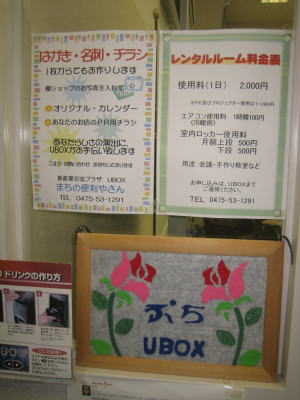 はがき・名刺・チラシ
1枚からでもお作りします
棚ショップのお写真を入れて
オリジナル・カレンダー
あなたのお店のPR用チラシ
あなたらしさの演出に
UBOXがお手伝い致します
ご注文・お問い合わせ お待ちしております
新産業交流プラザ UBOX
まちの便利やさん
TEL 0475-53-1291
レンタルルーム料金表
使用料(1日) 2,000円
エアコン使用料 1時間100円
(冷暖房)
室内ロッカー使用料
月額上段 500円
下段 500円
用途 会議・手作り教室など
お申し込みは、UBOXまで
ご連絡ください。
TEL 0475-53-1291
ドリンクの作り方
ぷら
UBOX